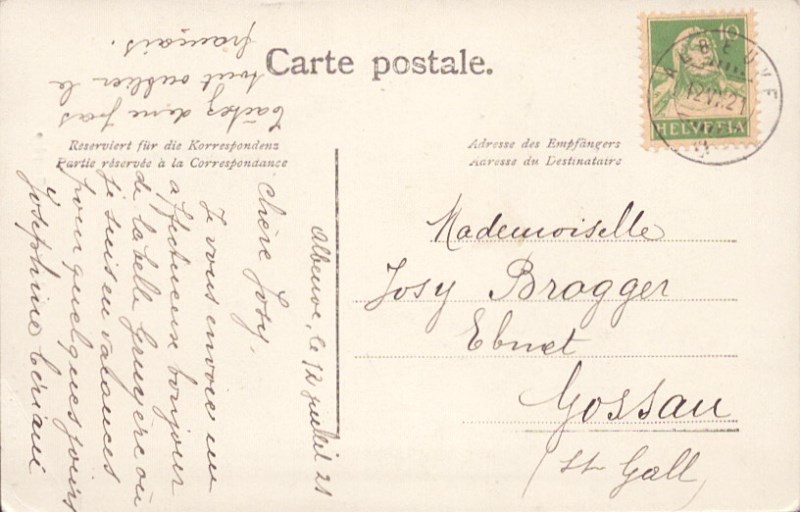 Carte postale.
Reserviert für die Korrespondenz
Partie réservée à la Correspondance
Adresse des Empfängers
Adresse du Destinataire
10
HELVETIA
ALBEUVE
12 VII 21
Albeuve, le 12 juillet 21
Chère Josy.
Je vous envoie un
affectueux bonjour
de la belle Gruyère où
je suis en vacances
pour quelques jours
Josephine
Tâchez de ne pas
tout oublier le
français.
Mademoiselle
Josy Brogger
Ebnet
Gossau
(St Gall)